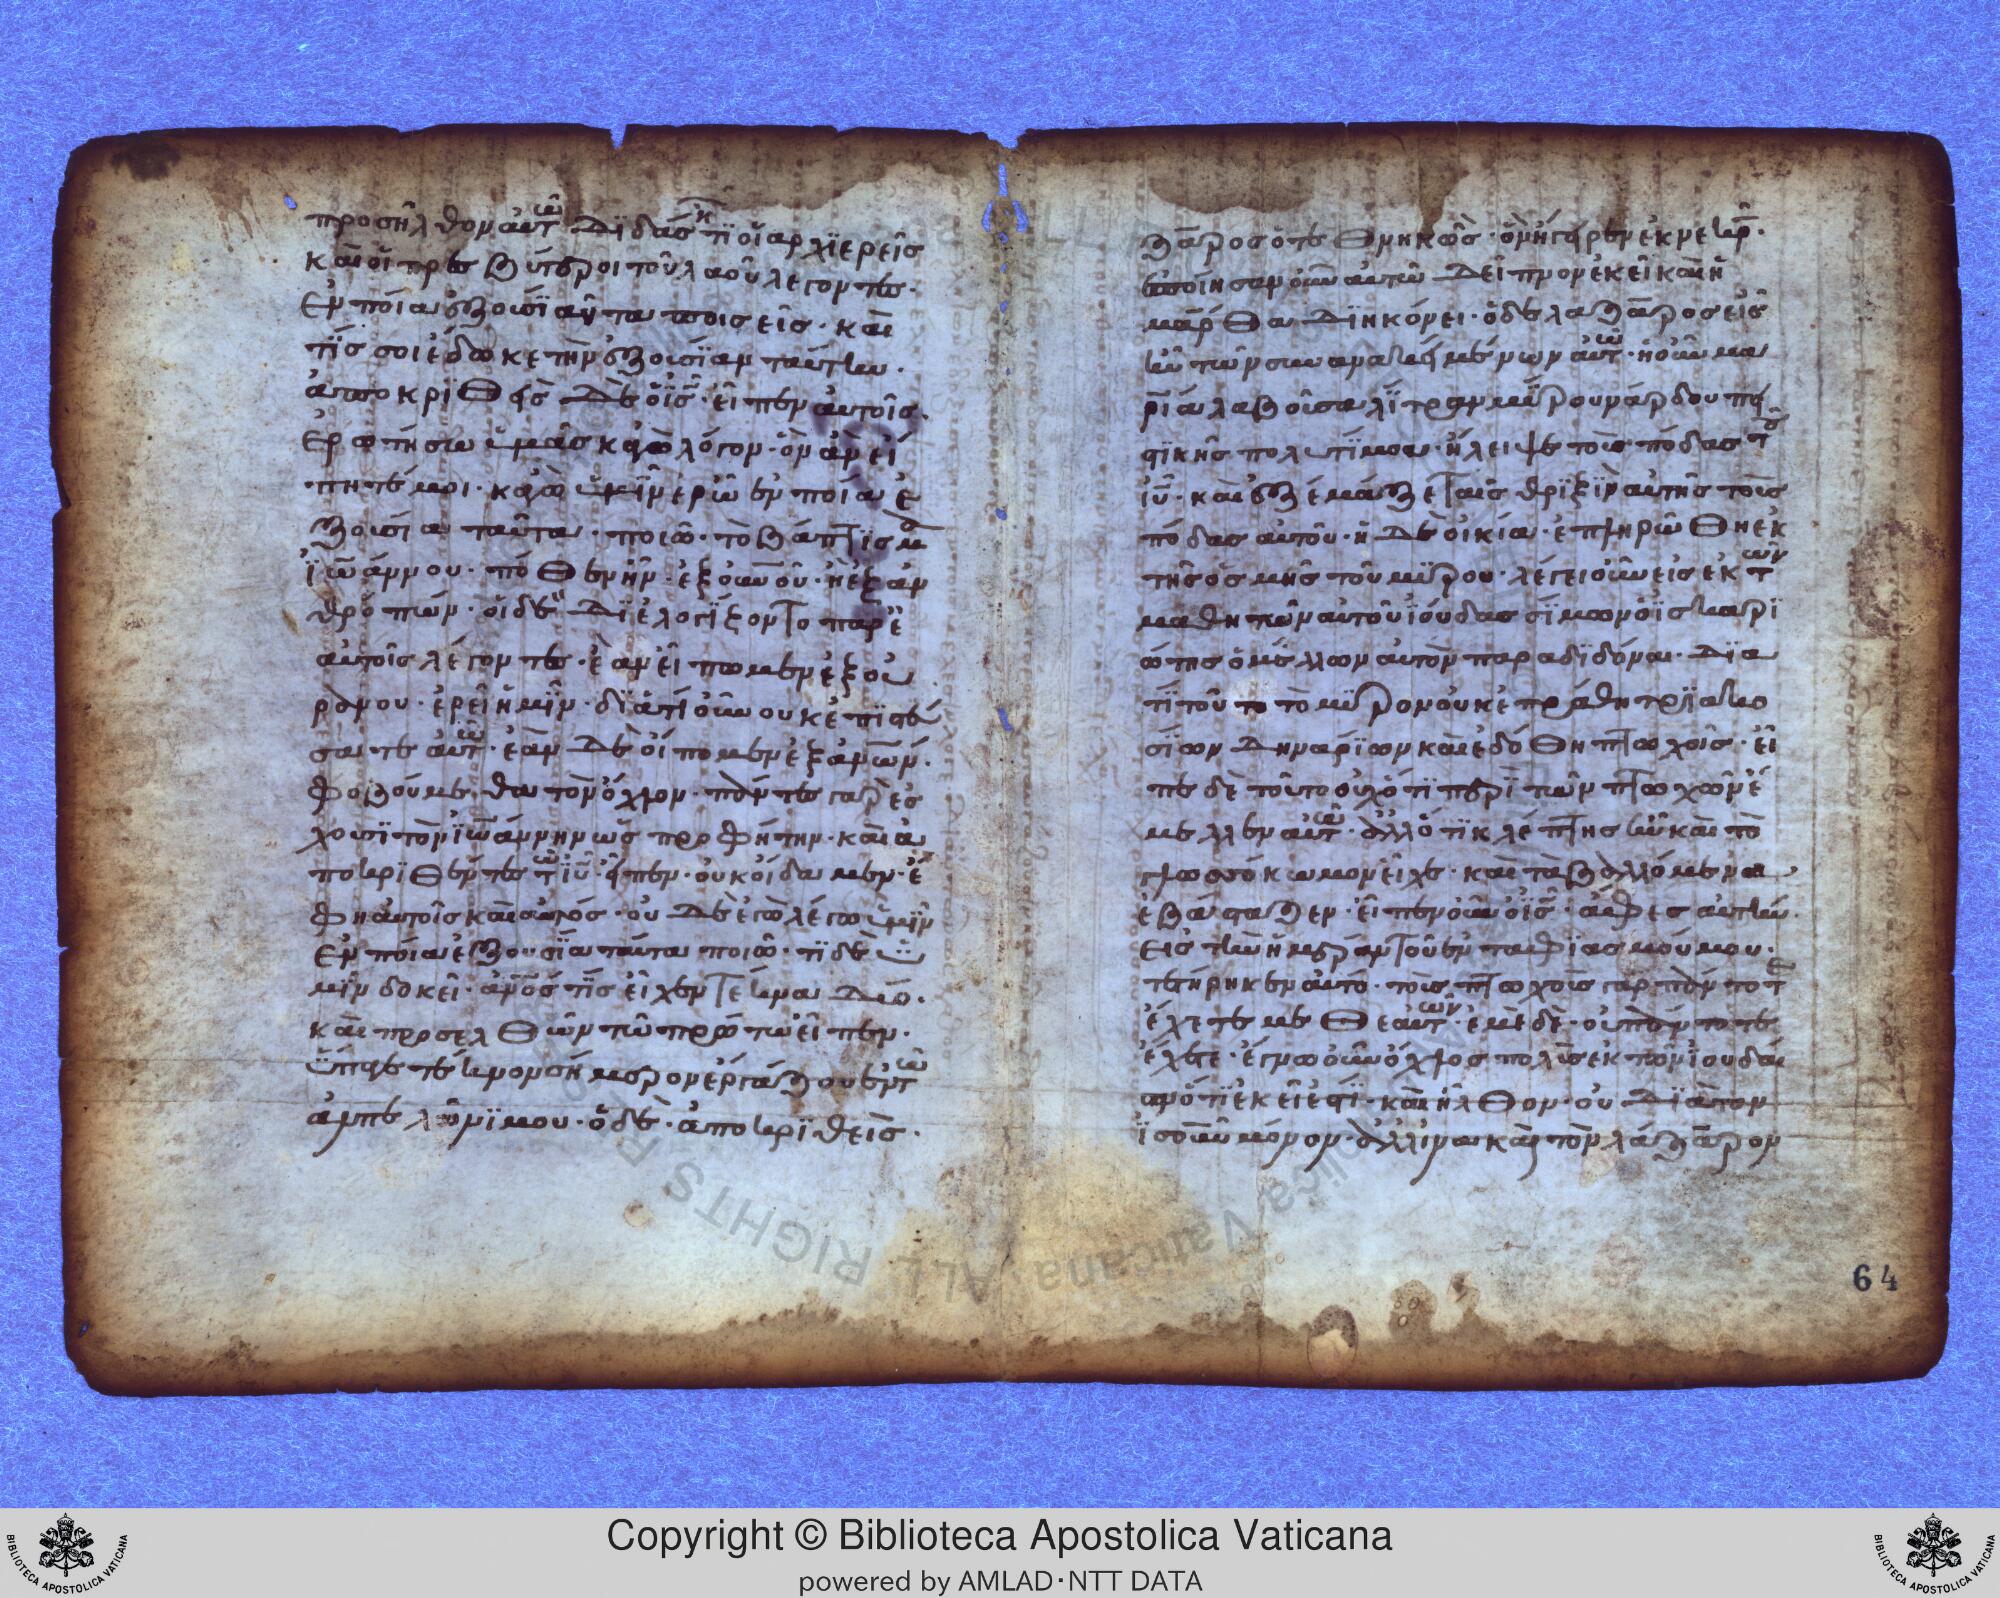 προσῆλθον αὐτῶ διδάσκοντι οἱ ἀρχιερεῖς
καὶ οἱ πρεσβύτεροι τοῦ λαοῦ λέγοντες·
ἐν ποία ἐξουσία ταῦτα ποιεῖς· καὶ
τίς σοι ἔδωκε τὴν ἐξουσίαν ταύτην·
ἀποκριθεὶς δὲ ὁ ἰς· εἶπεν αὐτοῖς·
ἐρωτήσω ὑμᾶς κἀγὼ λόγον· ὃν ἂν εἴ
πητέ μοι· κἀγὼ ὑμῖν ἐρῶ ἐν ποία ἐ
ζουσία ταῦτα· ποιῶ· τὸ βάπτισμα
ἰωάννου· πόθεν ἦν· ἐξ οὐνοῦ· ἢ ἐξ ἀν
θρόπων· οἱ δὲ διελογίζοντο παρ' ἑ
αὐτοῖς λέγοντες· ἐὰν εἴπωμεν ἐξ οὐ
ρανου· ἐρεῖ ἡμῖν· διατί οὖν οὐκ ἐπιστεύ
σατε αὐτῶ· ἐὰν δὲ εἴπομεν ἐξ ἀνων·
φοβούμεθα τὸν ὄχλον· πάντες γὰρ ἔσ
χουσι τὸν ἰωάννην ὡς προφήτην· καὶ ἀ
ποκριθέντες τῶ ἰυ· εἶπεν· οὐκ οἴδαμεν· ἔ
φη αὐτοῖς καὶ αὐτός· οὐ δὲ ἐγὼ λέγω ὑμῖν
ἐν ποία ἐξουσία ταῦτα ποιῶ· τί δὲ ὑ
μῖν δοκεῖ· ἀνός τις εἶχεν τέκνα δύο·
καὶ προσελθὼν τῶ πρώτω εἶπεν·
ὕπαγε τέκνον σήμερον ἐργάζου ἐν τῶ
ἀμπελῶνι μου· ὁ δὲ· ἀποκριθεὶς·
ζαρος ὁ τεθνηκὼς· ὃν ἤγειρεν ἐκ νεκρῶν·
ἐποίησαν οὖν αὐτῶ δεῖπνον ἐκεῖ καὶ ἡ
μάρθα διηκόνει· ὁ δὲ λαζαρος εἷς
ἦν τῶν συνανακειμένων αὐτῶ· ἡ οὖν μα
ρία λαβοῦσα λίτραν μύρου νάρδου πι
στικῆς πολυτίμου· ἤλειψε τοὺς πόδας τοῦ
ἰυ· καὶ ἐξέμαξε ταῖς θριξὶν αὐτῆς τοὺς
πόδας αὐτοῦ· ἡ δὲ οἰκία· ἐπληρώθη ἐκ
τῆς ὀσμῆς τοῦ μύρου· λέγει οὖν εἷς ἐκ τῶν
μαθητῶν αὐτοῦ ἰούδας σίμων ὁ ἰσκαρι
ώτης ὁ μέλλων αὐτὸν παραδιδόναι· δια
τί τοῦτο τὸ μύρον οὐκ ἐπράθη τριακο
σίων δηναρίων καὶ ἐδόθη πτωχοῖς· εἶ
πε δὲ τοῦτο οὐχ ὅτι περὶ τῶν πτωχῶν ἔ
μελλεν αὐτῶ· ἀλλ' ὅτι κλέπτης ἦν καὶ τὸ
γλωσσόκωμον εἶχε· καὶ τὰ βαλλόμενα
ἐβάσταζεν· εἶπεν οὖν ὁ ἰς· ἄφες αὐτὴν·
εἰς τὴν ἡμέραν τοῦ ἐνταφιασμού μου·
τετήρηκεν αὐτό· τοὺς πτωχοὺς γὰρ πάντοτε
ἔχετε μεθ' ἑαυτῶν· ἐμὲ δὲ· οὐ πάντοτε
ἔχετε· ἔγνω οὖν ὄχλος πολὺς ἐκ τῶν ἰουδαί
ων ὅτι ἐκεῖ ἐστί· καὶ ἦλθον· οὐ διὰ τὸν
ἰησοῦν μόνον· ἀλλ' ἵνα καὶ τὸν λάζαρον
64
Copyright © Biblioteca Apostolica Vaticana
powered by AMLAD·NTT DATA